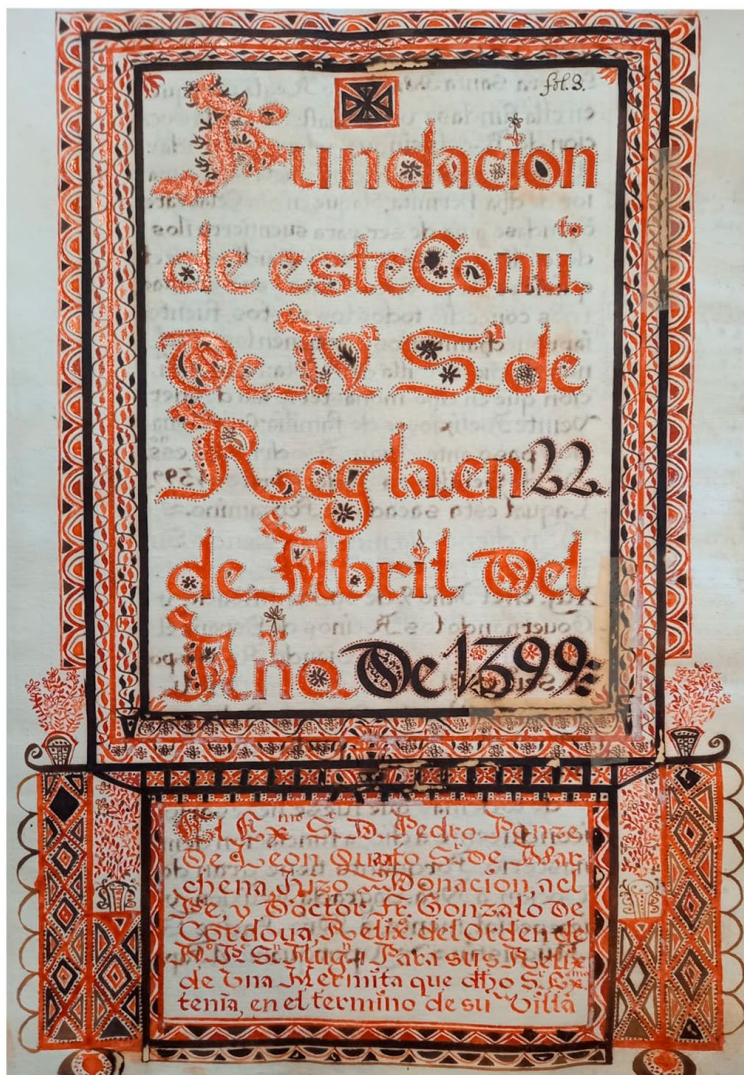 fol. 3.
Fundacion
de este Conu.to
De N. S. de
Regla. en 22
de Abril Del
Año De 1399
El Ex.mo S.D. Pedro Ponze
De Leon Quarto S.r de Mar
chena, hizo Donacion, a el
Pe, y Doctor Fr. Gonzalo De
Cordova, Relix. del Orden de
N.o P.e S.n Aug.n Para sus Relix
de Una Hermita que dho S.r Ex.mo
tenia, en el termino de su Villa